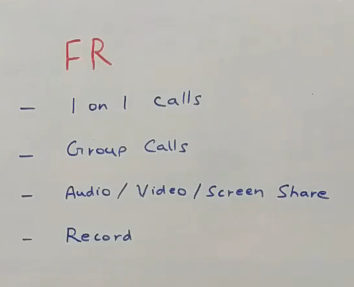 FR
- 1 on 1 calls
- Group Calls
- Audio / Video / Screen Share
- Record